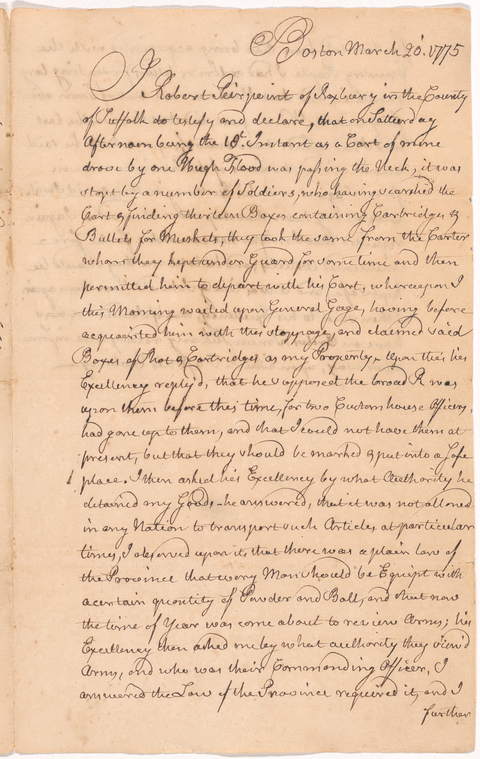 Boston March 20. 1775
I Robert Peirpoint of Roxbury in the County
of Suffolk do testify and declare, that on Satturday
Afternoon being the 18t. Instant as a Cart of mine
drove by one Hugh Flood was passing the Neck, it was
stopt by a number of Soldiers, who having searched the
Cart & finding thirteen Boxes containing Cartridges &
Bullets for Muskets, they took the same from the Carter
whom they kept under Guard for some time and then
permitted him to depart with his Cart, whereupon I
this Morning waited upon General Gage, having before
acquainted him with this stoppage, and claimed said
Boxes of Shot & Cartridges as my Property - Upon this his
Excellency reply'd, that he supposed the broad R was
upon them before this time, for two Custom house Officers,
had gone up to them, and that I could not have them at
present, but that they should be marked & put into a safe
place. I then asked his Excellency by what Authority he
detained my Goods - he answered, that it was not allowed
in any Nation to transport such Articles at particular
times, I observed upon it, that there was a plain law of
the Province that every Man should be Equipt with
a certain quantity of Powder and Ball, and that now
the time of Year was come about to review Arms; his
Excellency then asked me by what authority they view'd
Arms, and who was their Commanding Officer, I
answered the Law of the Province required it, and I
further